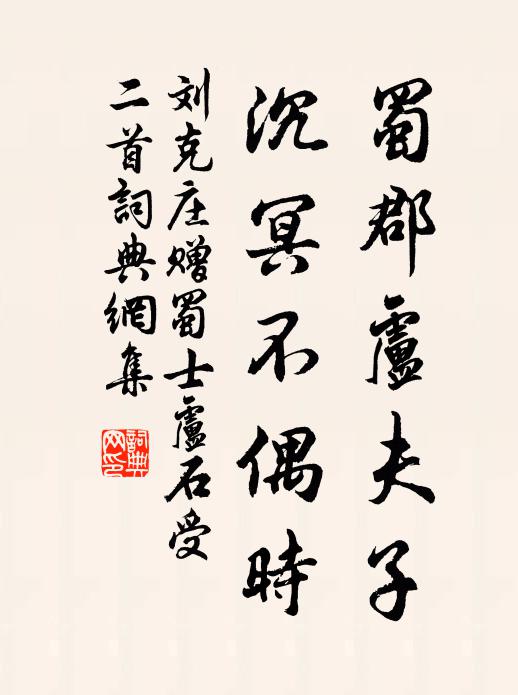 蜀郡廬夫子
沉冥不偶時
刘克庄赠蜀士廬石受
二首詞典網集
詞典网印